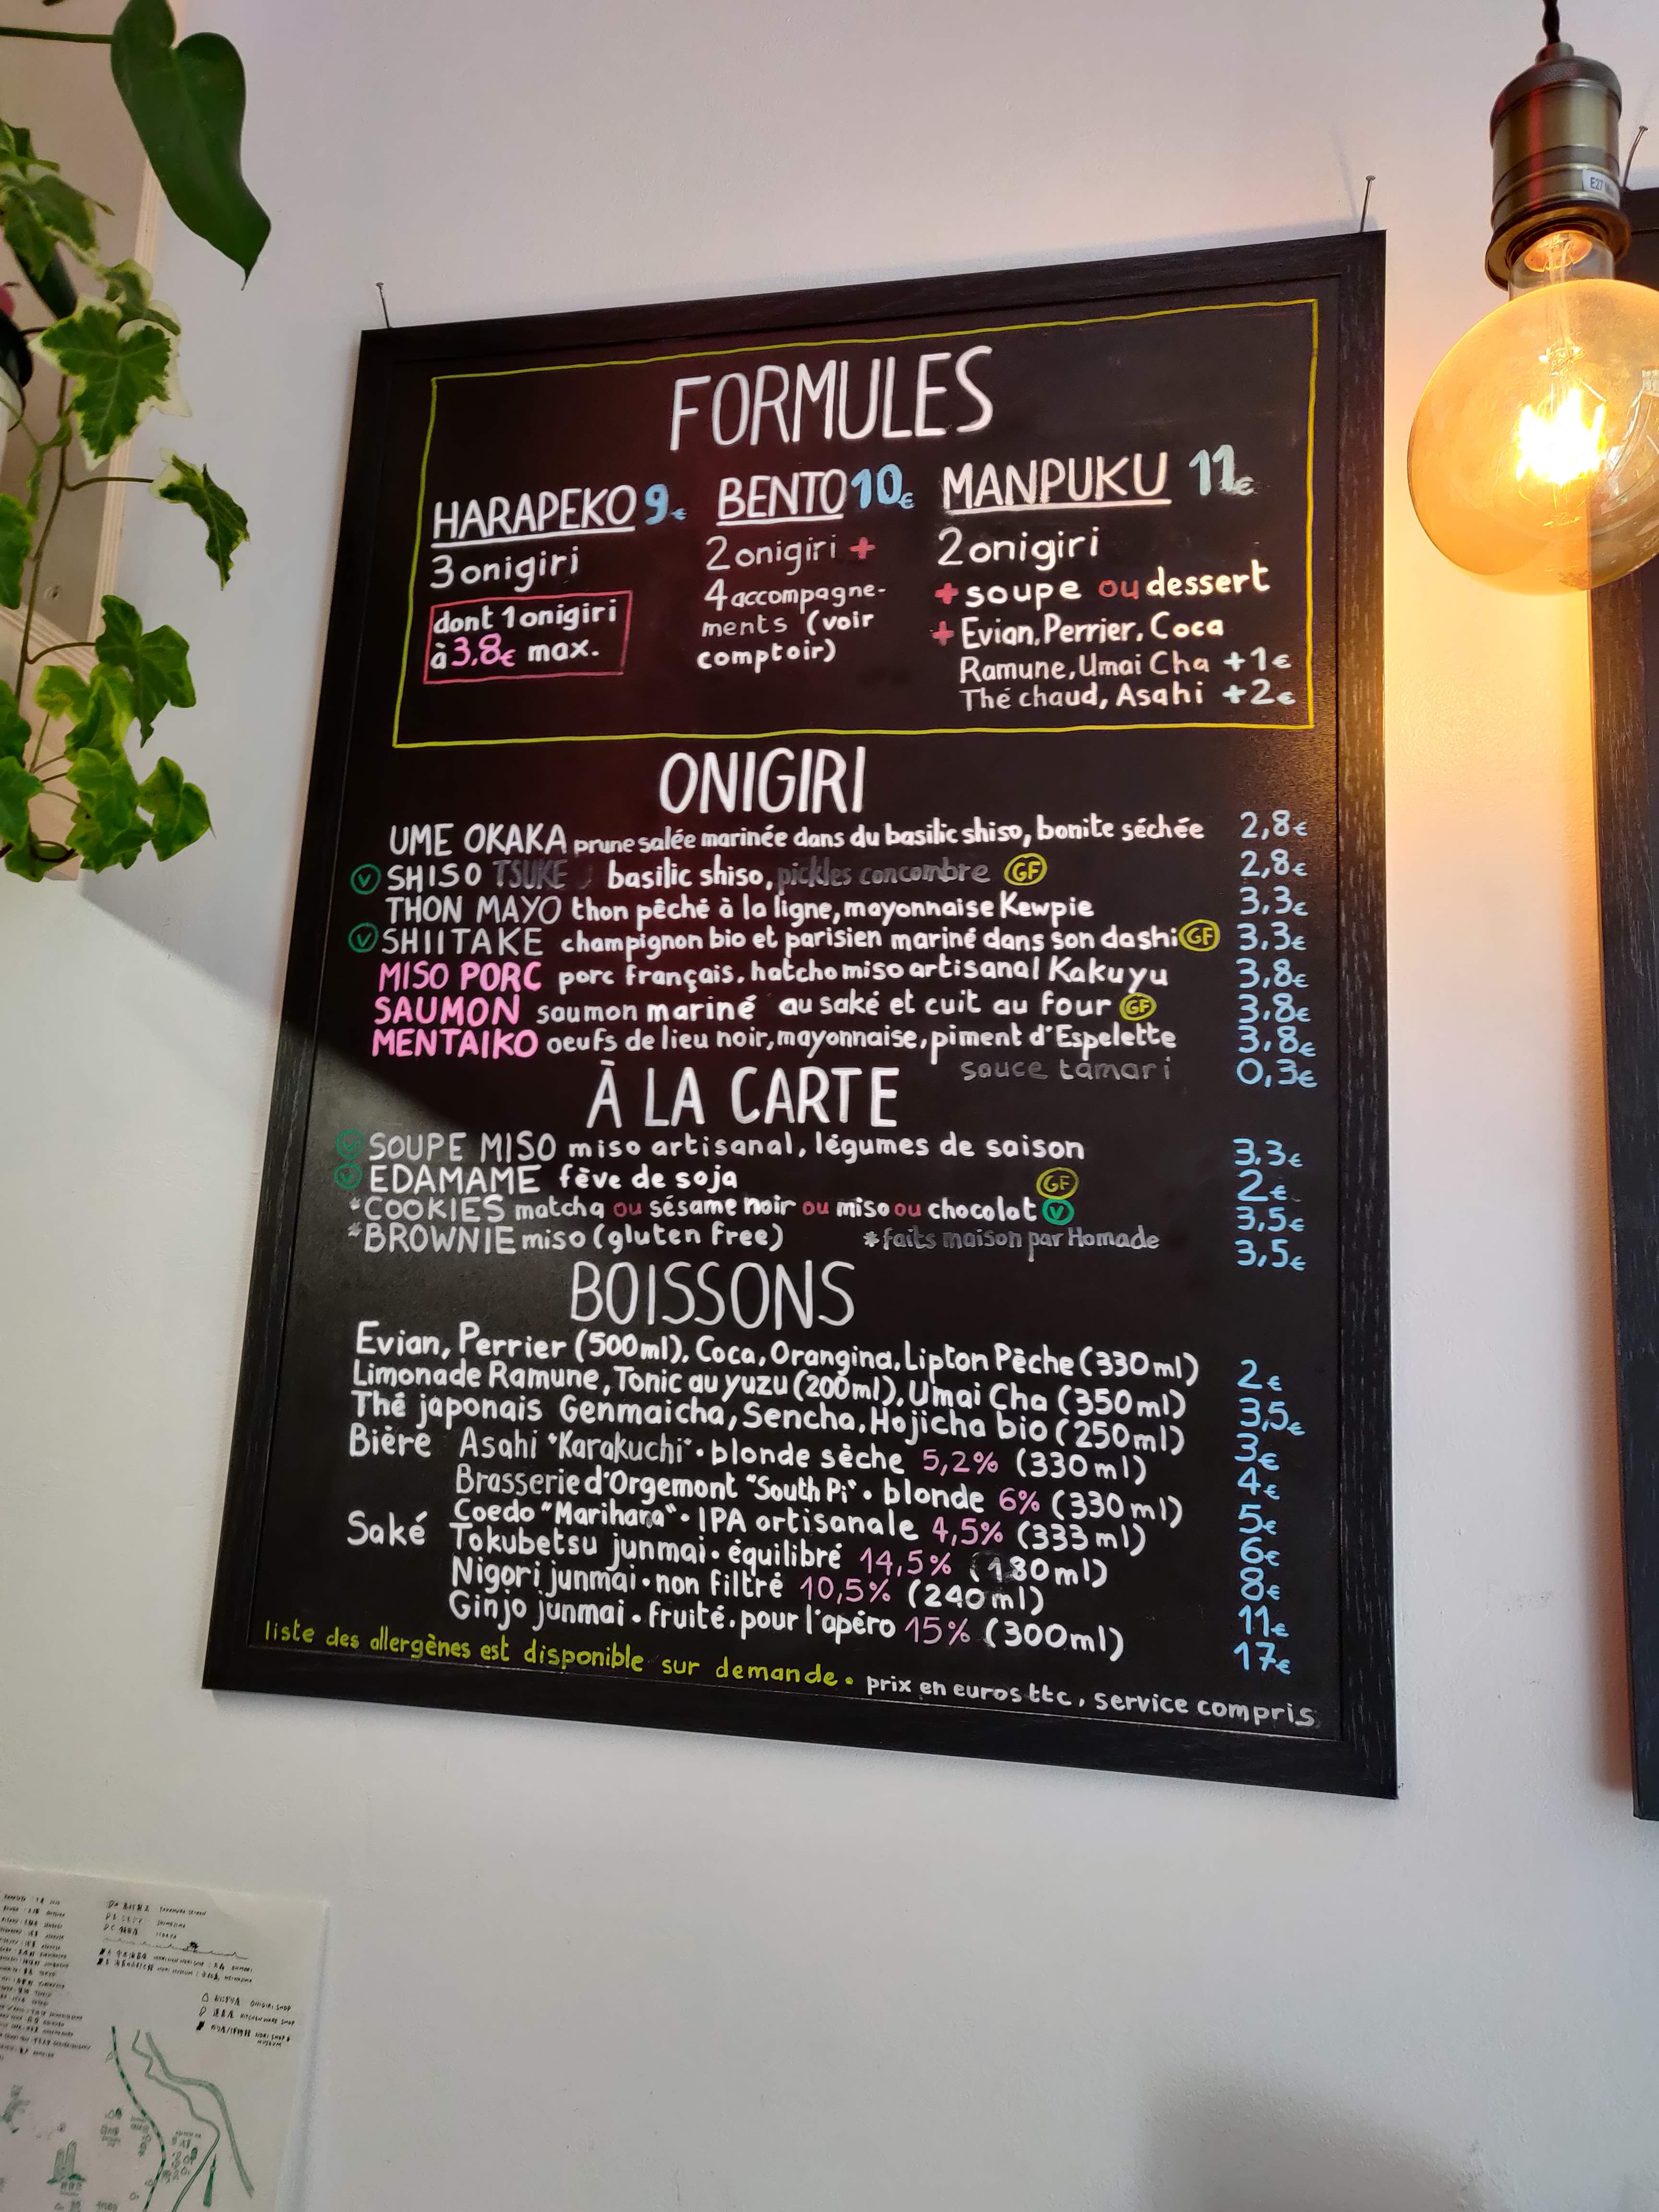 FORMULES
HARAPEKO 9€
3 onigiri
dont 1 onigiri
à 3,8€ max.
BENTO 10€
2 onigiri +
4 accompagne-
ments (voir
comptoir)
MANPUKU 11€
2 onigiri
+ soupe ou dessert
+ Evian, Perrier, Coca
Ramune, Umai Cha +1€
Thé chaud, Asahi +2€
ONIGIRI
UME OKAKA prune salée marinée dans du basilic shiso, bonite séchée 2,8€
V SHISO TSUKE basilic shiso, pickles concombre GF 2,8€
THON MAYO thon pêché à la ligne, mayonnaise Kewpie 3,3€
V SHIITAKE champignon bio et parisien mariné dans son dashi GF 3,3€
MISO PORC porc français, hatcho miso artisanal Kakuyu 3,8€
SAUMON saumon mariné au saké et cuit au four GF 3,8€
MENTAIKO oeufs de lieu noir, mayonnaise, piment d'Espelette 3,8€
sauce tamari 0,3€
À LA CARTE
V SOUPE MISO miso artisanal, légumes de saison 3,3€
V EDAMAME fève de soja GF 2€
*COOKIES matcha ou sésame noir ou miso ou chocolat V 3,5€
*BROWNIE miso (gluten free) *faits maison par Homade 3,5€
BOISSONS
Evian, Perrier (500ml), Coca, Orangina, Lipton Pêche (330ml) 2€
Limonade Ramune, Tonic au yuzu (200ml), Umai Cha (350ml) 3,5€
Thé japonais Genmaicha, Sencha, Hojicha bio (250ml) 3€
Bière Asahi "Karakuchi" • blonde sèche 5,2% (330ml) 4€
Brasserie d'Orgemont "South Pi" • blonde 6% (330ml) 5€
Coedo "Marihana" • IPA artisanale 4,5% (333ml) 6€
Saké Tokubetsu junmai • équilibré 14,5% (180ml) 8€
Nigori junmai • non filtré 10,5% (240ml) 11€
Ginjo junmai • fruité, pour l'apéro 15% (300ml) 17€
liste des allergènes est disponible sur demande • prix en euros ttc, service compris
E27
ONIGIRI SHOP
KITCHENWARE SHOP
NORI SHOP &
MUSEUM